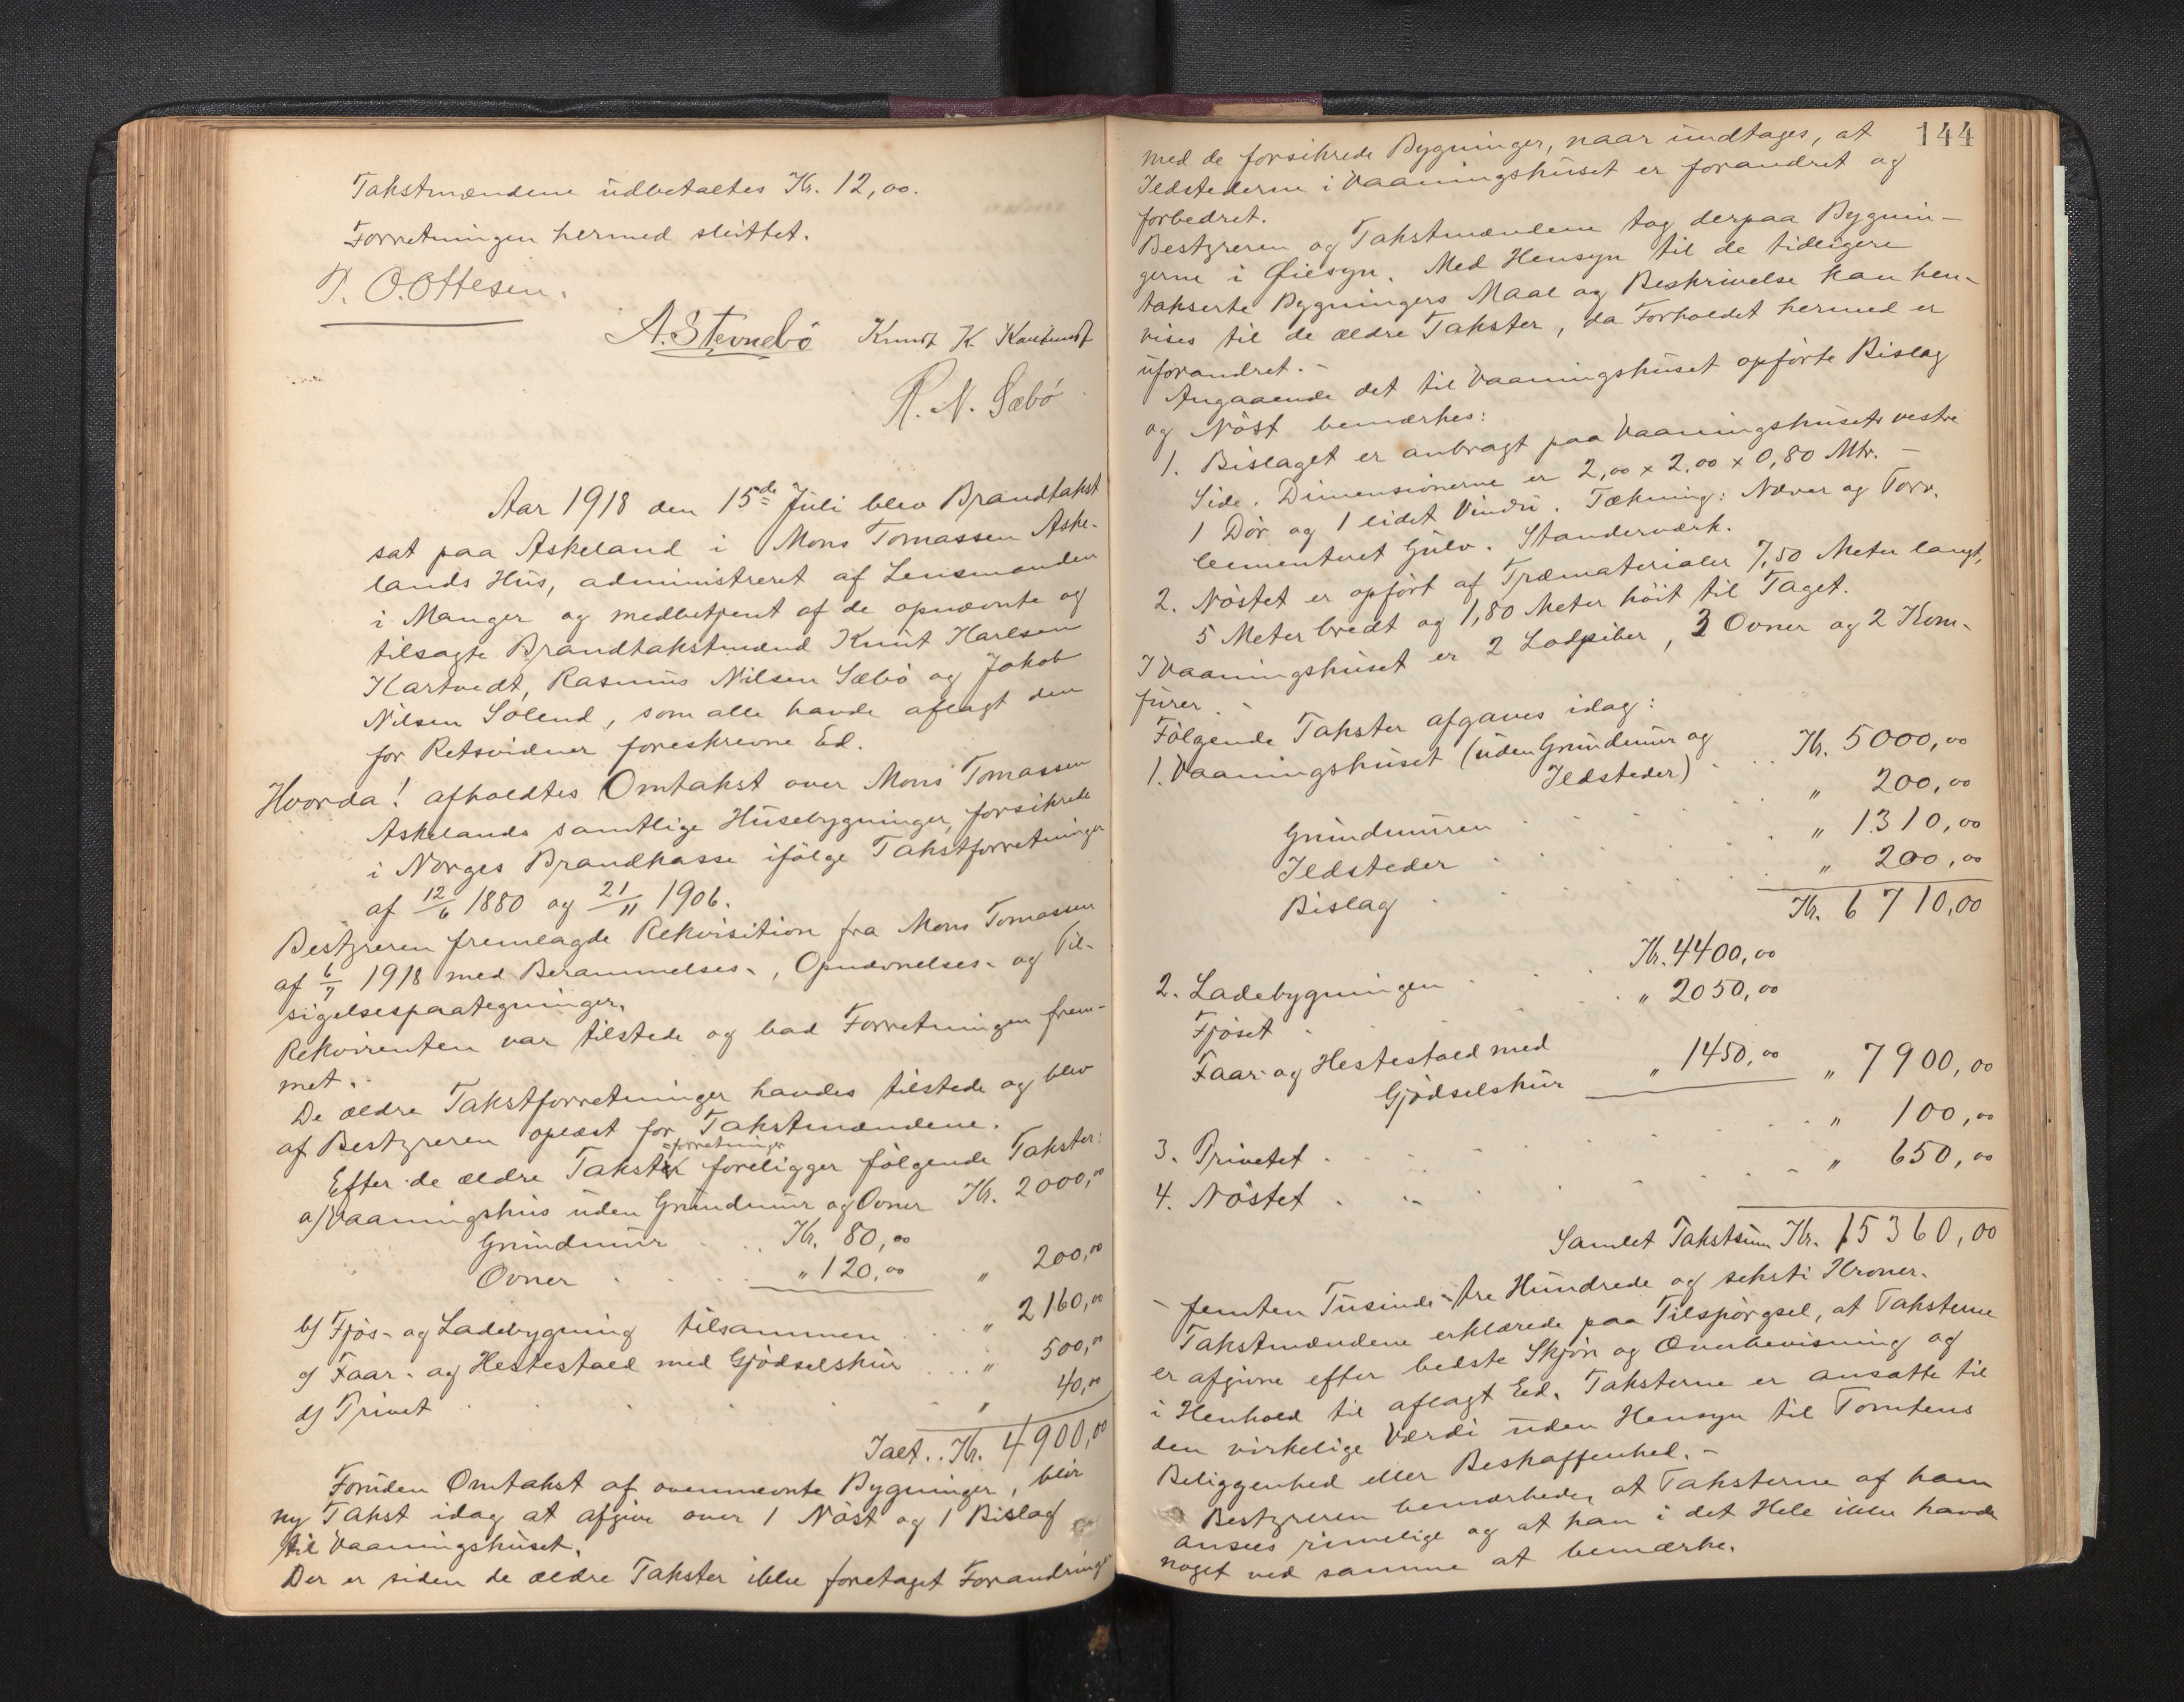 Takstmændene udbetaltes Kr. 12,00.
Forretningen hermed sluttet.
P. O. Ottesen.
A. Stevnebö Knut K. Kartvedt
R. N. Sæbö
Aar 1918 den 15de Juli blev Brandtakst
sat paa Askeland i Mons Tomassen Aske-
lands Hus, administreret af Lensmanden
i Manger og medbetjent af de opnævnte og
tilsagte Brandtakstmænd Knut Karlsen
Kartvedt, Rasmus Nilsen Sæbö og Jakob
Nilsen Solend, som alle havde aflagt den
for Retsvidner foreskrevne Ed.
Hvorda! afholdtes Omtakst over Mons Tomassen
Askelands samtlige Husebygninger, forsikrede
i Norges Brandkasse ifölge Takstforretninger
af 12/6 1880 og 21/11 1906.
Bestyreren fremlagde Rekvisition fra Mons Tomassen
af 6/7 1918 med Berammelses-, Opnævnelses- og Til-
sigelsespaategninger.
Rekvirenten var tilstede og bad Forretningen frem-
met.
De ældre Takstforretninger havdes tilstede og blev
af Bestyreren oplæst for Takstmændene.
Efter de ældre Takstforretninger foreligger fölgende Takster:
a) Vaaningshus uden Grundmur og Ovner Kr. 2000,00
Grundmur .. Kr. 80,00
Ovner . . . . " 120,00 " 200,00
b) Fjös- og Ladebygning tilsammen . . . " 2160,00
c) Faar- og Hestestald med Gjödselskur . . . " 500,00
d) Privet . . . . . " 40,00
Ialt .. Kr. 4900,00
Foruden Omtakst af ovennævnte Bygninger, blir
ny Takst idag at afgive over 1 Nöst og 1 Bislag
til Vaaningshuset.
Der er siden de ældre Takster ikke foretaget Forandringer
144
med de forsikrede Bygninger, naar undtages, at
Ildstederne i Vaaningshuset er forandret og
forbedret.
Bestyreren og Takstmændene tog derpaa Bygnin-
gerne i Öiesyn. Med Hensyn til de tidligere
takserte Bygningers Maal og Beskrivelse kan hen-
vises til de ældre Takster, da Forholdet hermed er
uforandret. -
Angaaende det til Vaaningshuset opförte Bislag
og Nöst bemærkes:
1. Bislaget er anbragt paa Vaaningshusets vestre
Side. Dimensionerne er 2,00 x 2,00 x 0,80 Mtr. -
1 Dör og 1 lidet Vindu. Tækning: Næver og Torv.
Cementeret Gulv. Standerværk.
2. Nöstet er opfört af Træmaterialer 7,50 Meter langt,
5 Meter bredt og 1,80 Meter höit til Taget.
I Vaaningshuset er 2 Lodpiber, 3 Ovner og 2 Kom-
furer. -
Fölgende Takster afgaves idag:
1. Vaaningshuset (uden Grundmur og
Ildsteder) . . . Kr. 5000,00
Grundmuren . . . . . " 200,00
Ildsteder . . . . . " 1310,00
Bislag . . . . . " 200,00
Kr. 6710,00
2. Ladebygningen . . . Kr. 4400,00
Fjöset . . . . " 2050,00
Faar- og Hestestald med
Gjödselskur " 1450,00 " 7900,00
3. Privetet . . . . . " 100,00
4. Nöstet . . . . . " 650,00
Samlet Takstsum Kr. 15360,00
- femten Tusinde - tre Hundrede og seksti Kroner.
Takstmændene erklærede paa Tilspörgsel, at Taksterne
er afgivne efter bedste Skjön og Overbevisning og
i Henhold til aflagt Eed. Taksterne er ansatte til
den virkelige Værdi uden Hensyn til Tomtens
Beliggenhed eller Beskaffenhed. -
Bestyreren bemærkede, at Taksterne af ham
ansees rimelige og at han i det Hele ikke havde
noget ved samme at bemærke.